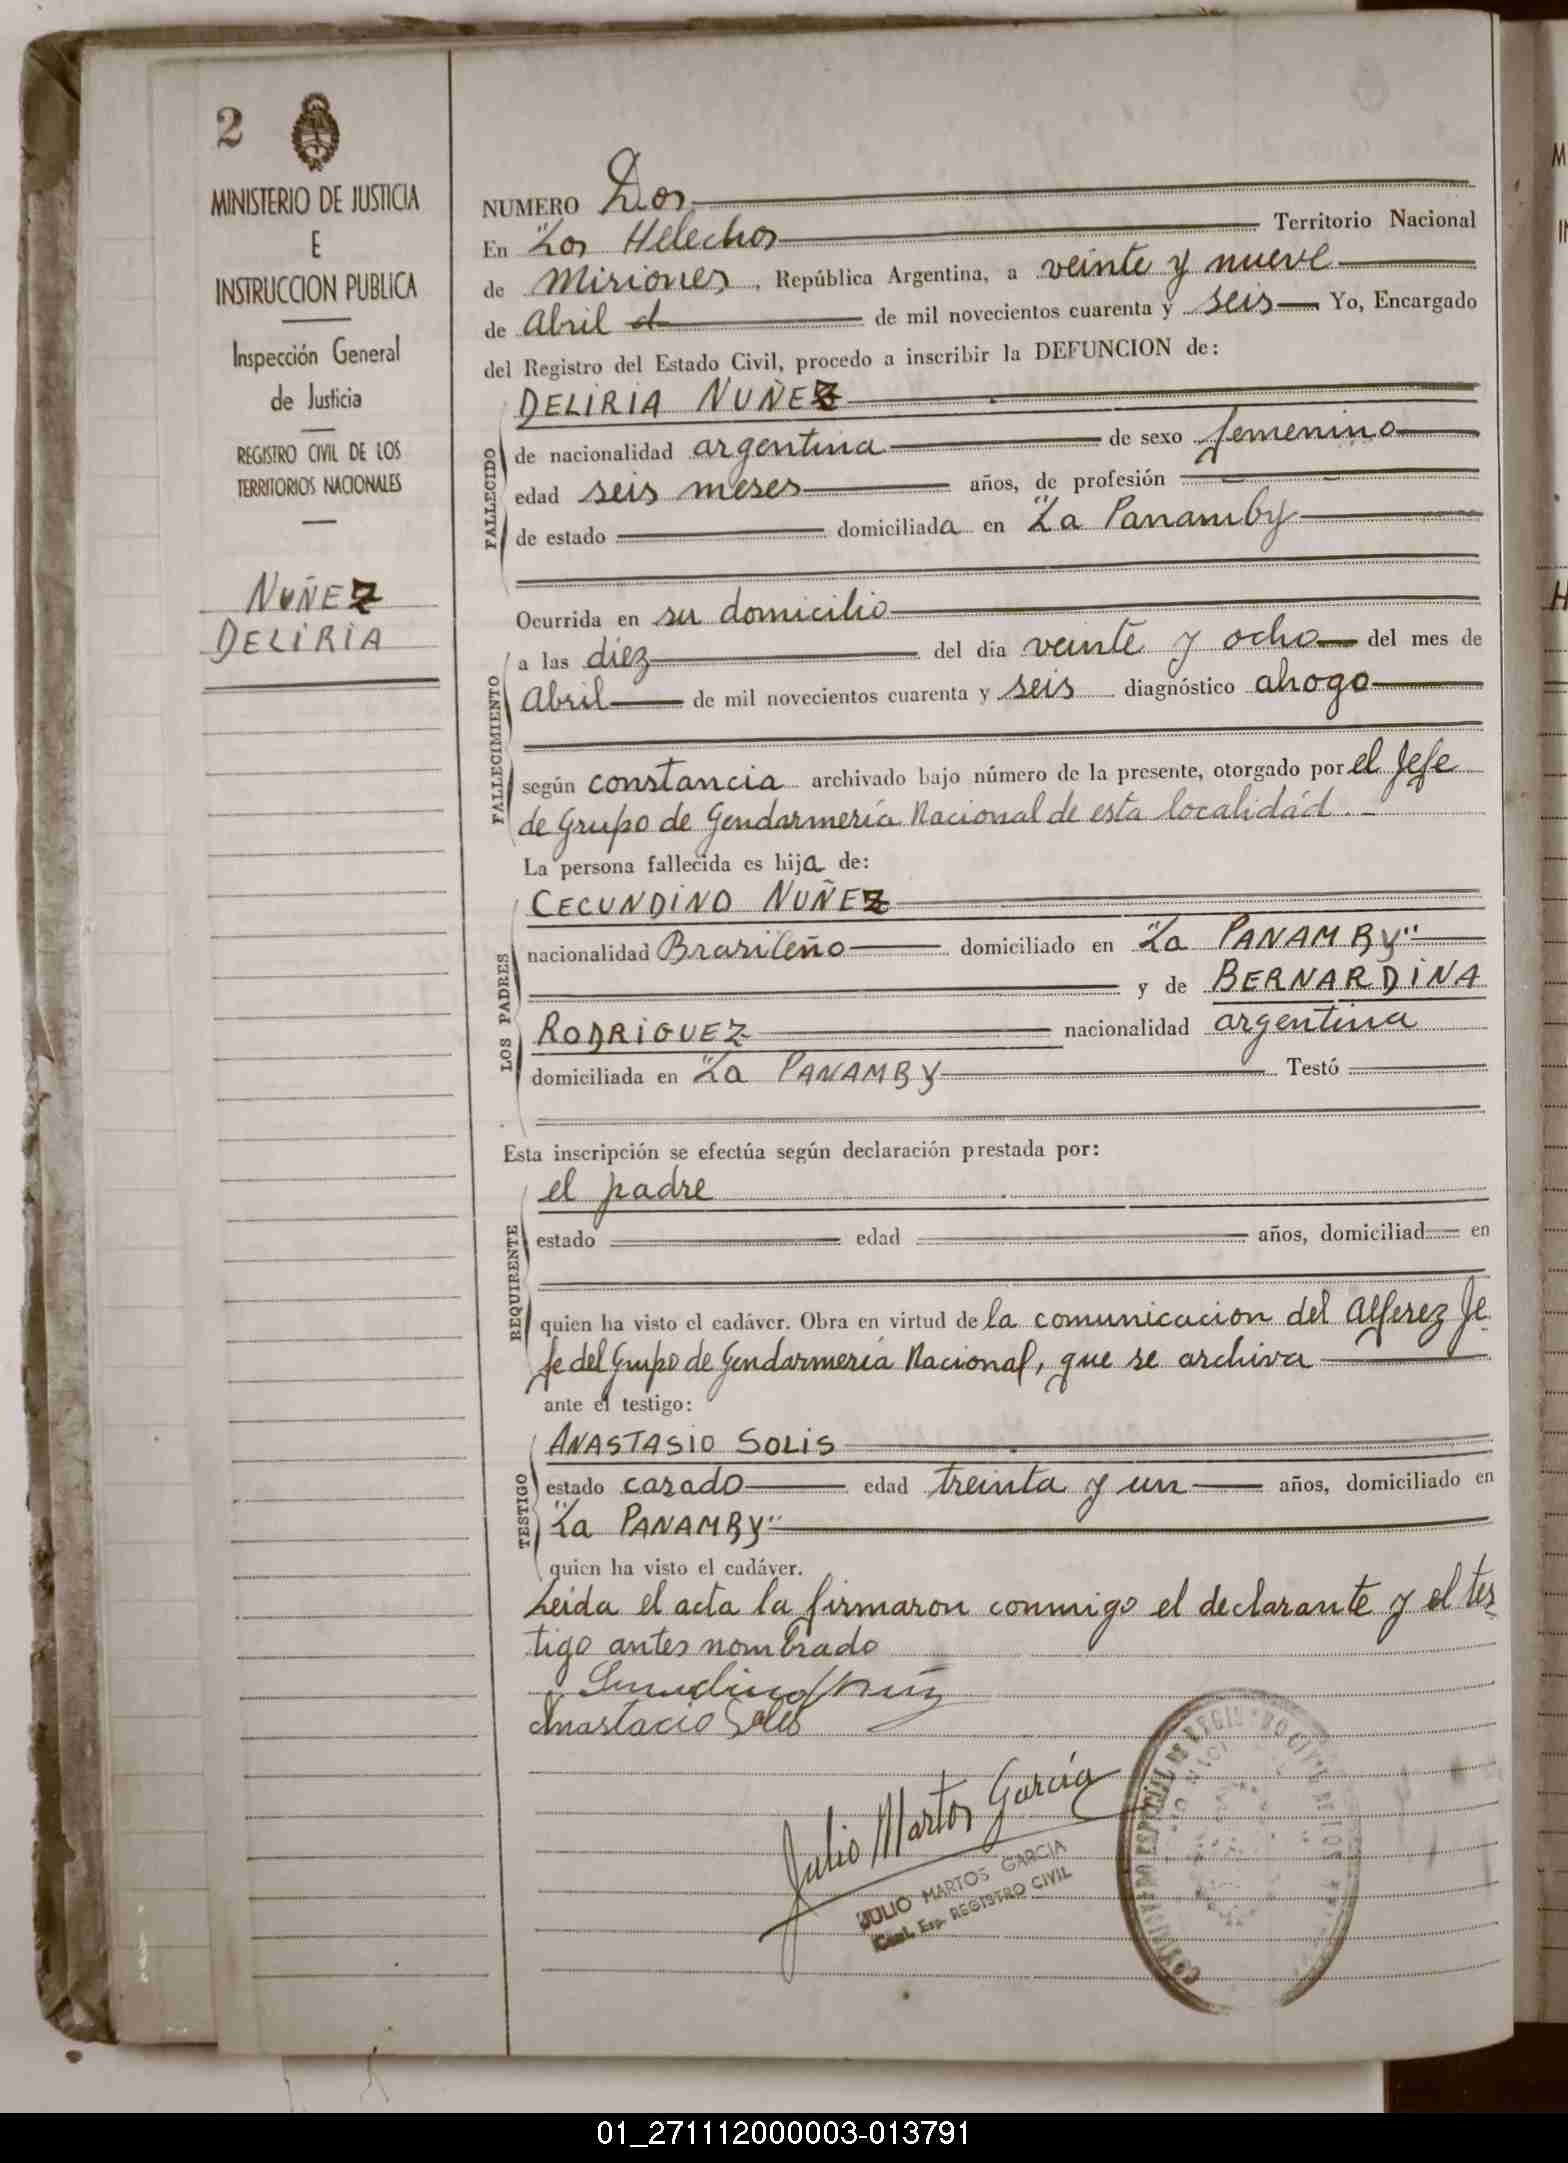 2
MINISTERIO DE JUSTICIA
E
INSTRUCCION PUBLICA
Inspección General
de Justicia
REGISTRO CIVIL DE LOS
TERRITORIOS NACIONALES
NUÑEZ
DELIRIA
NUMERO Dos
En "Los Helechos Territorio Nacional
de Misiones, República Argentina, a veinte y nueve
de Abril d de mil novecientos cuarenta y seis Yo, Encargado
del Registro del Estado Civil, procedo a inscribir la DEFUNCION de:
FALLECIDO
DELIRIA NUÑEZ
de nacionalidad argentina de sexo femenino
edad seis meses años, de profesión
de estado domiciliada en "La Panamby
FALLECIMIENTO
Ocurrida en su domicilio
a las diez del día veinte y ocho del mes de
Abril de mil novecientos cuarenta y seis diagnóstico ahogo
según constancia archivado bajo número de la presente, otorgado por el Jefe
de Grupo de Gendarmería Nacional de esta localidád.
La persona fallecida es hija de:
LOS PADRES
CECUNDINO NUÑEZ
nacionalidad Brasileño domiciliado en "La PANAMBY"
y de BERNARDINA
RODRIGUEZ nacionalidad argentina
domiciliada en "La PANAMBY Testó
Esta inscripción se efectúa según declaración prestada por:
REQUIRENTE
el padre
estado edad años, domiciliad en
quien ha visto el cadáver. Obra en virtud de la comunicacion del Alferez Je-
fe del Grupo de Gendarmería Nacional, que se archiva
ante el testigo:
TESTIGO
ANASTASIO SOLIS
estado casado edad treinta y un años, domiciliado en
"La PANAMBY"
quien ha visto el cadáver.
Leida el acta la firmaron conmigo el declarante y el tes-
tigo antes nombrado
Anastacio Solis
Julio Martos García
JULIO MARTOS GARCIA
Esp. REGISTRO CIVIL
01_271112000003-013791